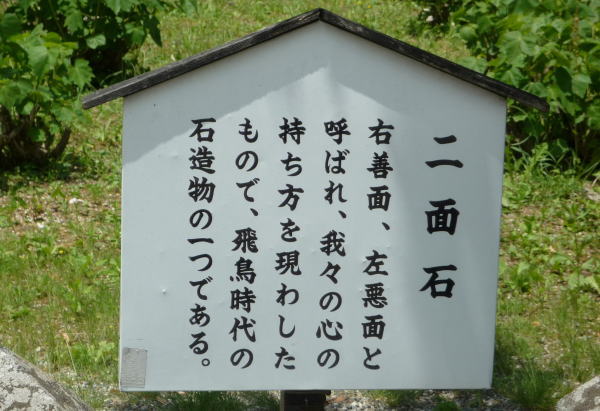 二面石
右善面、左悪面と
呼ばれ、我々の心の
持ち方を現わした
もので、飛鳥時代の
石造物の一つである。